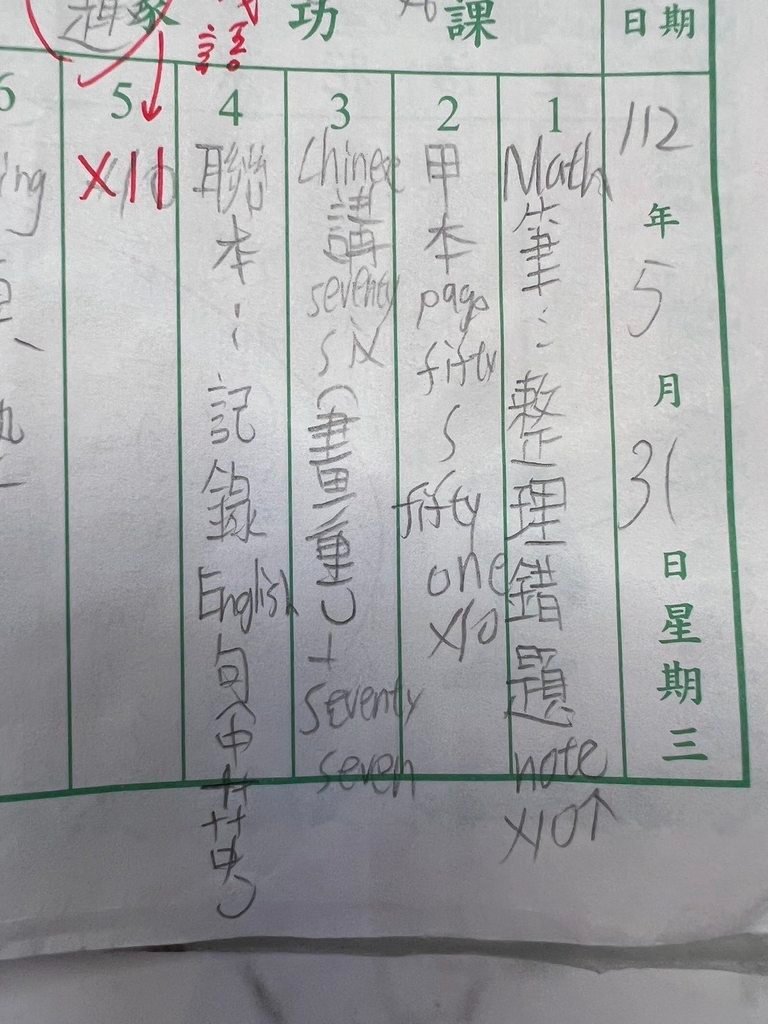 家功課
日期
112年5月31日星期三
1
Math筆：整理錯題note x10↑
2
甲本page fifty ~ fifty one x10
3
Chinese講seventy six（畫重）+ seventy seven
4
聯本：記錄English句（中英）
5
x11
6
ing